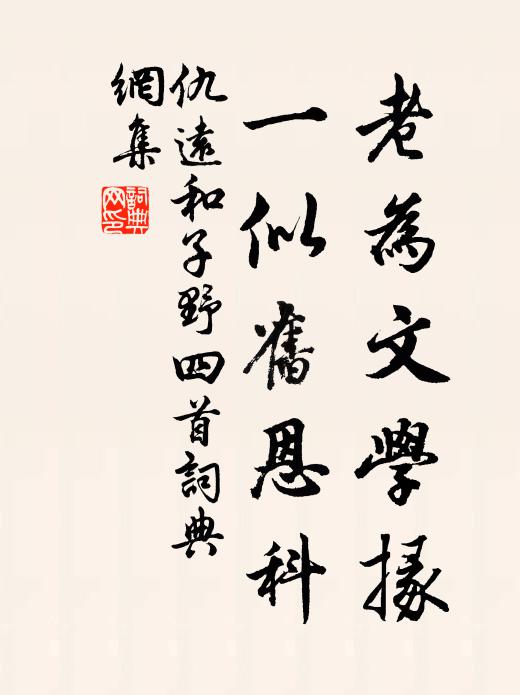 老為文學掾
一似舊恩科
仇遠和子野四首詞典
網集
詞典網印